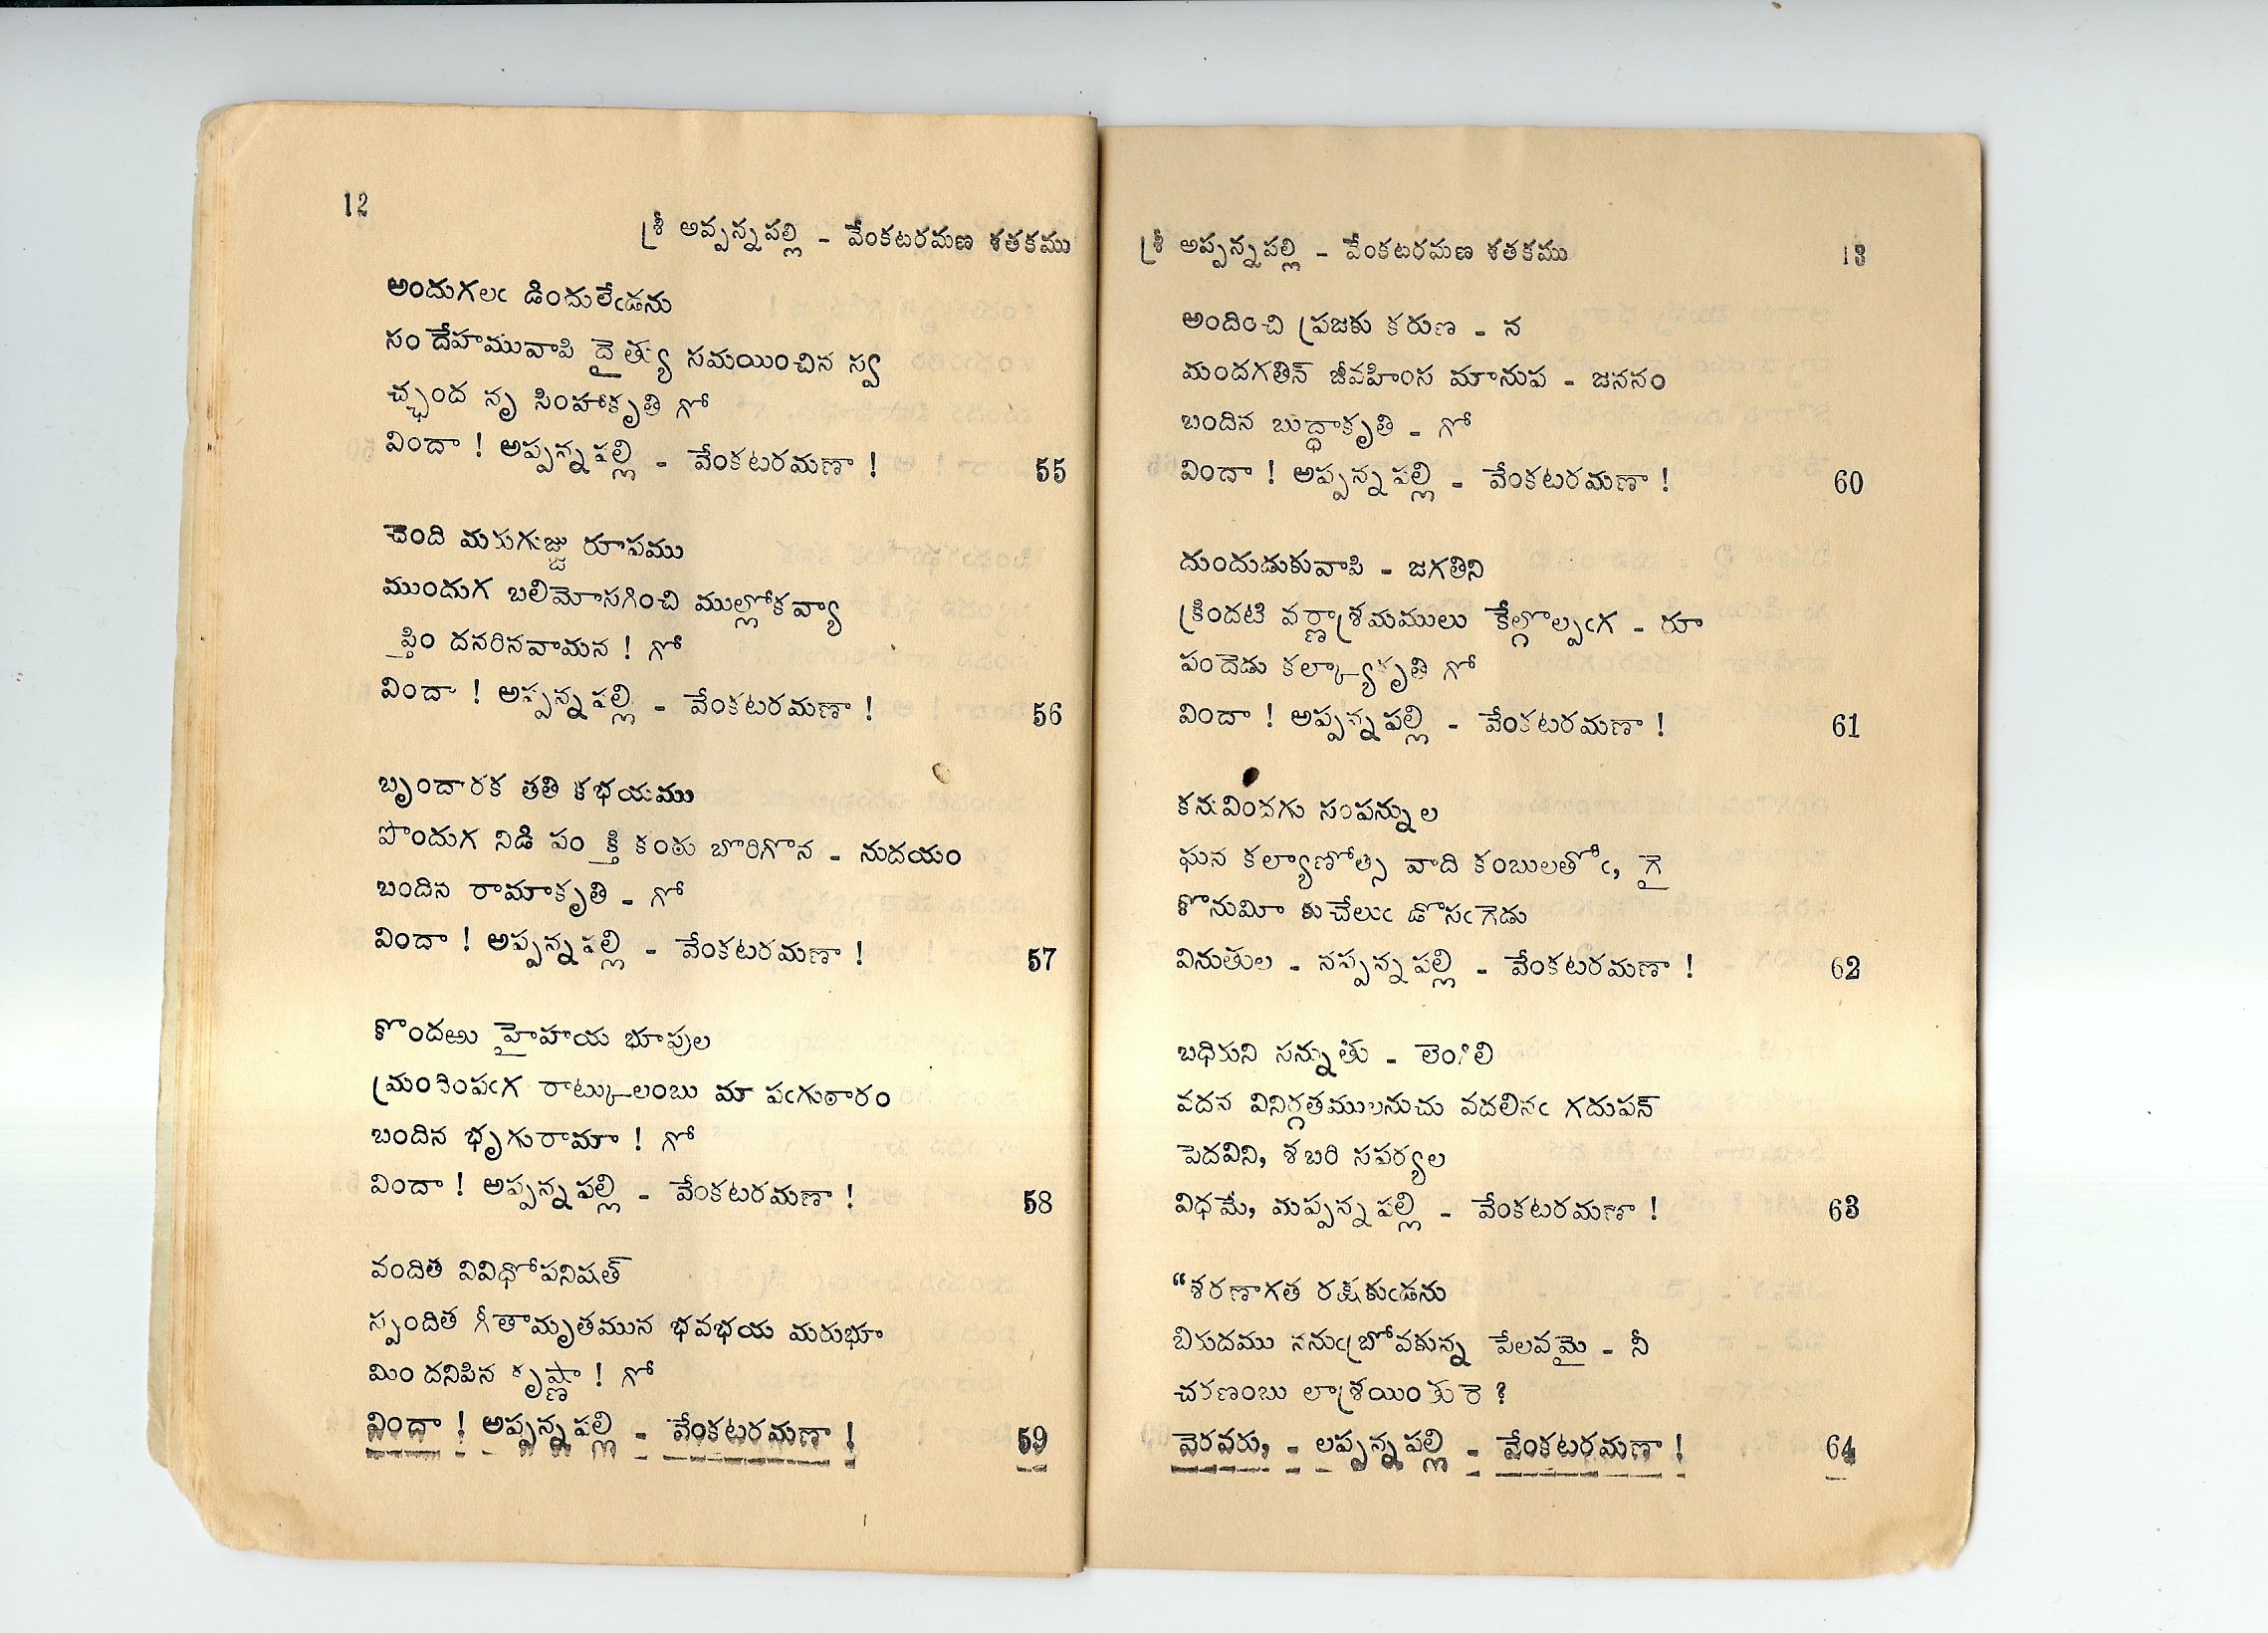 12
శ్రీ అప్పన్నపల్లి - వేంకటరమణ శతకము
అందుగలఁ డిందులేఁడను
సందేహమువాపి దైత్యు సమయించిన స్వ
చ్ఛంద నృ సింహాకృతి గో
విందా ! అప్పన్నపల్లి - వేంకటరమణా ! 55
చెంది మఱుగుజ్జు రూపము
ముందుగ బలిమోసగించి ముల్లోకవ్యా
ప్తిం దనరినవామన ! గో
విందా ! అప్పన్నపల్లి - వేంకటరమణా ! 56
బృందారక తతి కభయము
పొందుగ నిడి పంక్తి కంఠు బొరిగొన - నుదయం
బందిన రామాకృతి - గో
విందా ! అప్పన్నపల్లి - వేంకటరమణా ! 57
కొందఱు హైహయ భూపుల
మ్రందింపఁగ రాట్కులంబు మాపఁగుఠారం
బందిన భృగురామా ! గో
విందా ! అప్పన్నపల్లి - వేంకటరమణా ! 58
వందిత వివిధోపనిషత్
స్పందిత గీతామృతమున భవభయ మరుభూ
మిం దనిపిన కృష్ణా ! గో
విందా ! అప్పన్నపల్లి - వేంకటరమణా ! 59
శ్రీ అప్పన్నపల్లి - వేంకటరమణ శతకము 13
అందించి ప్రజకు కరుణ - న
మందగతిన్ జీవహింస మానుప - జననం
బందిన బుద్ధాకృతి - గో
విందా ! అప్పన్నపల్లి - వేంకటరమణా ! 60
దుందుడుకువాపి - జగతిని
క్రిందటి వర్ణాశ్రమములు కేల్గొల్పఁగ - రూ
పందెడు కల్క్యాకృతి గో
విందా ! అప్పన్నపల్లి - వేంకటరమణా ! 61
కనువిందగు సంపన్నుల
ఘన కల్యాణోత్స వాది కంబులతోఁ, గై
కొనుమీ కుచేలుఁ డొసఁగెడు
వినుతుల - నప్పన్నపల్లి - వేంకటరమణా ! 62
బధికుని సన్నుతు - లెంగిలి
వదన వినిర్గతములనుచు వదలినఁ గదుపన్
పెదవిని, శబరి సపర్యల
విధమే, మప్పన్నపల్లి - వేంకటరమణా ! 63
“శరణాగత రక్షకుఁడను
బిరుదము ననుఁబ్రోవకున్న పేలవమై - నీ
చరణంబు లాశ్రయింతురె ?
వెరవరు, - లప్పన్నపల్లి - వేంకటరమణా ! 64